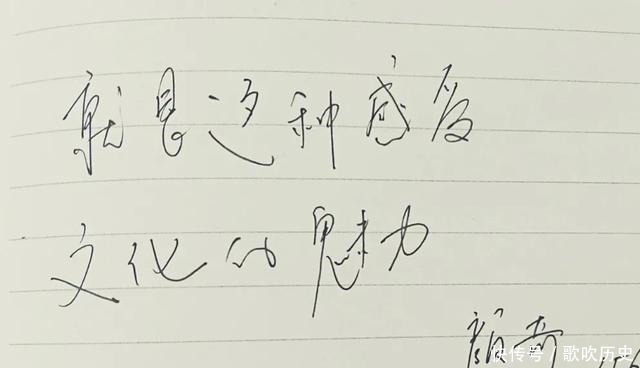 就是这种感受
文化的魅力
颜
快传号/歌吹历史